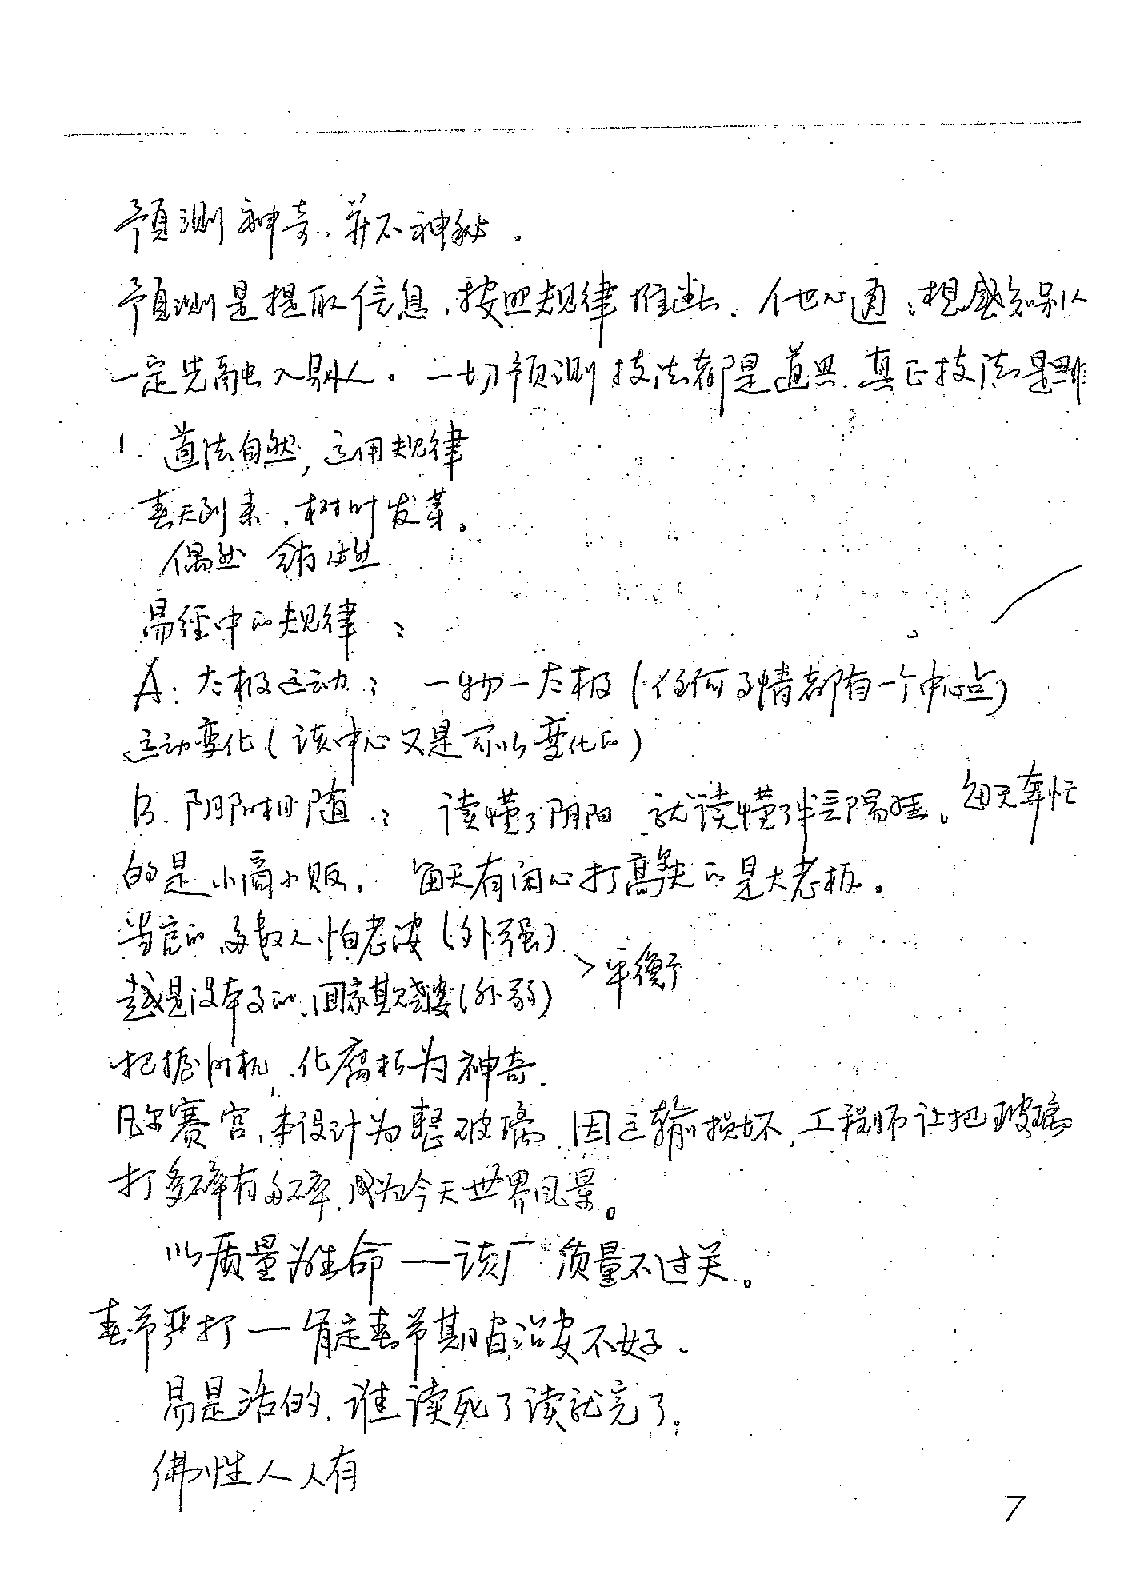 预测神奇，并不神秘。
预测是提取信息，按照规律推断。他心通：想感知别人
一定先融入别人。一切预测技法都是道具，真正技法是
1. 道法自然，运用规律
春天到来，树叶发芽。
偶然 必然
易经中的规律：
A：太极运动：一物一太极（任何事情都有一个中心点）
运动变化（该中心又是可以变化的）
B. 阴阳相随：读懂了阴阳 就读懂了半言陽宅。每天奔忙
的是小商小贩，每天有闲心打高尔夫的是大老板。
当官的，多数人怕老婆（外强）
越是没本事的，回家欺负老婆（外弱）
>平衡
把握时机，化腐朽为神奇。
凡尔赛宫，本设计为整玻璃，因运输损坏，工程师让把玻璃
打多碎有多碎，成为今天世界风景。
以质量为生命——该厂质量不过关。
春节严打——肯定春节期间治安不好。
易是活的，谁读死了读就完了。
佛性人人有
7